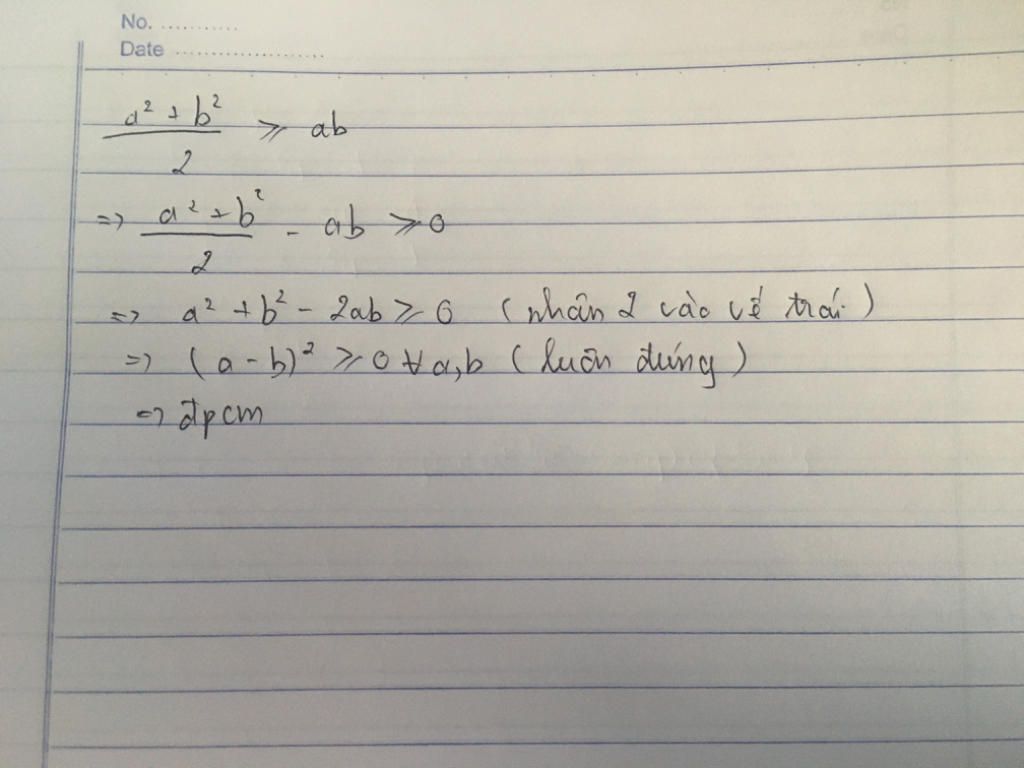 No. ............
Date ........................
a² + b² / 2 ≥ ab
=> a² + b² / 2 - ab ≥ 0
=> a² + b² - 2ab ≥ 0 (nhân 2 vào vế trái)
=> (a - b)² ≥ 0 ∀ a,b (luôn đúng)
=> đpcm